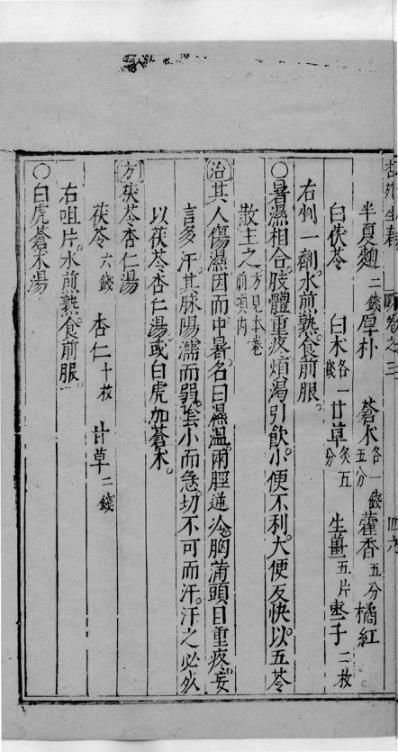 半夏麯二錢厚朴 蒼朮各一錢五分藿香五分橘紅
白茯苓 白朮各一錢甘草炙五分 生薑五片棗子二枚
右剉一劑水煎熟食前服。
○暑濕相合。肢體重疼煩渴引飲。小便不利。大便反快以五苓
散主之方見本卷前類內
治其人傷濕因而中暑。名曰濕溫。兩脛逆冷。胸滿頭目重疼。妄
言多汗。其脉陽濡而弱。陰小而急。切不可而汗。汗之必死
以茯苓杏仁湯。或白虎加蒼朮。
方茯苓杏仁湯
茯苓六錢 杏仁十枚 甘草二錢
右咀片。水煎熟。食前服。
○白虎蒼朮湯